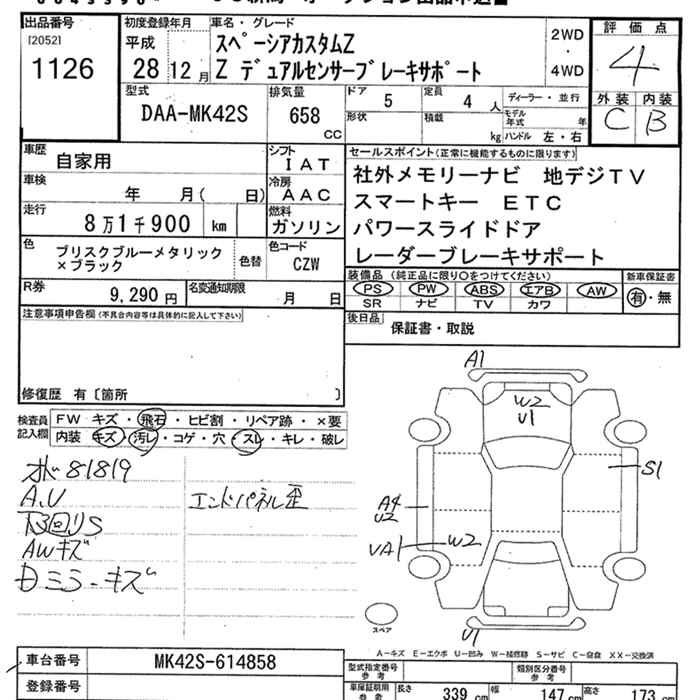 出品番号
[2052]
1126
初度登録年月
平成
28 12月
車名・グレード
スペーシアカスタムZ
Z デュアルセンサーブレーキサポート
2WD
4WD
評価点
4
外装 内装
C B
型式
DAA-MK42S
排気量
658
CC
ドア 5
定員 4 人
ディーラー・並行
形状
積載 kg
モデル年式 年
ハンドル 左・右
車歴
自家用
シフト
IAT
車検
年 月( 日)
冷房
AAC
走行
8万1千900 km
燃料
ガソリン
色
ブリスクブルーメタリック
×ブラック
色替
色コード
CZW
R券
9,290円
名変通知期限
月 日
セールスポイント(正常に機能するものに限ります)
社外メモリーナビ 地デジTV
スマートキー ETC
パワースライドドア
レーダーブレーキサポート
装備品 (純正品に限り○をつけてください)
PS PW ABS エアB AW
SR ナビ TV カワ
新車保証書
有・無
後日品
保証書・取説
注意事項申告欄(不具合内容等は具体的に記入して下さい)
修復歴 有〔箇所 〕
検査員
記入欄
FW キズ・飛石・ヒビ割・リペア跡・×要
内装 キズ・汚レ・コゲ・穴・スレ・キレ・破レ
ホ 81819
A.U
下回りS
AWキズ
ミラーキズ
エンドパネル歪
A1
W2
U1
S1
A4
U2
UA1
W2
U1
スペア
A-キズ E-エクボ U-凹み W-補修跡 S-サビ C-腐食 XX-交換済
車台番号
MK42S-614858
登録番号
型式指定番号
参考
類別区分番号
参考
車庫証明用
参考
長さ 339 cm
幅 147 cm
高さ 173 cm